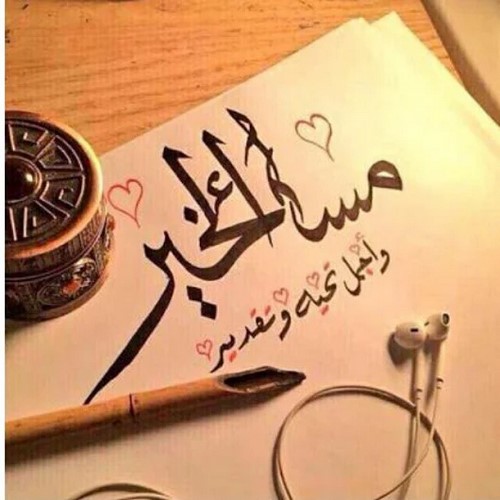 مساء الخير
وأجمل تحية وتقدير